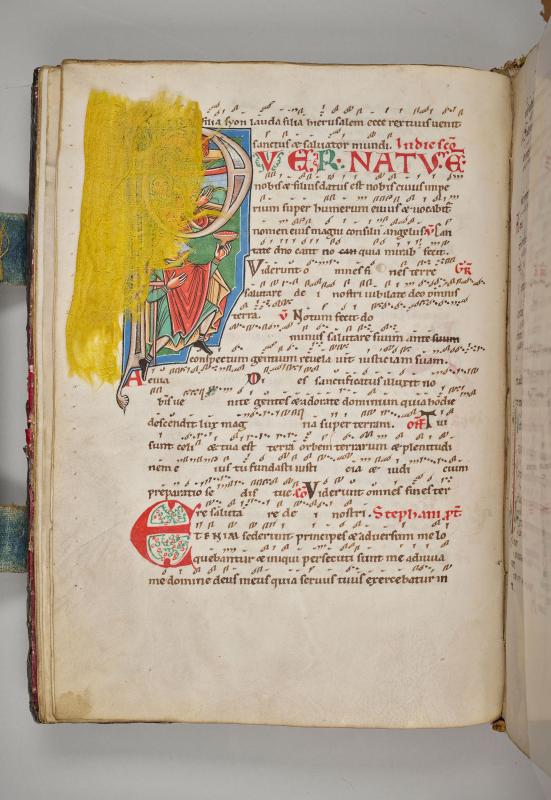 filia syon lauda filia hierusalem ecce rex tuus venit
sanctus & saluator mundi. In die sco
PVER NATVS E
nobis & filius datus est nobis cuius impe
rium super humerum eius & vocabit̅
nomen eius magni consilii angelus v̅ Can
tate dno cant no quia mirab fecit.
Viderunt o mnes fi nes terre GR̅
salutare de i nostri iubilate deo omnis
terra. v̅ Notum fecit do
minus salutare suum ante suum
conspectum gentium revela uit iusticiam suam.
Aeuia Di es sanctificatus illuxit no
bis ve nite gentes & adorate dominum quia hodie
descendit lux mag na super terram. off Tui
sunt celi & tua est terra orbem terrarum & plenitudi
nem e ius tu fundasti iusti cia & iudi cium
preparatio se dis tue co Viderunt omnes fines ter
re saluta re de i nostri. Stephani. pr̅
ETENIM sederunt principes & adversum me lo
quebantur & iniqui persecuti sunt me adiuva
me domine deus meus quia seruus tuus exercebatur in